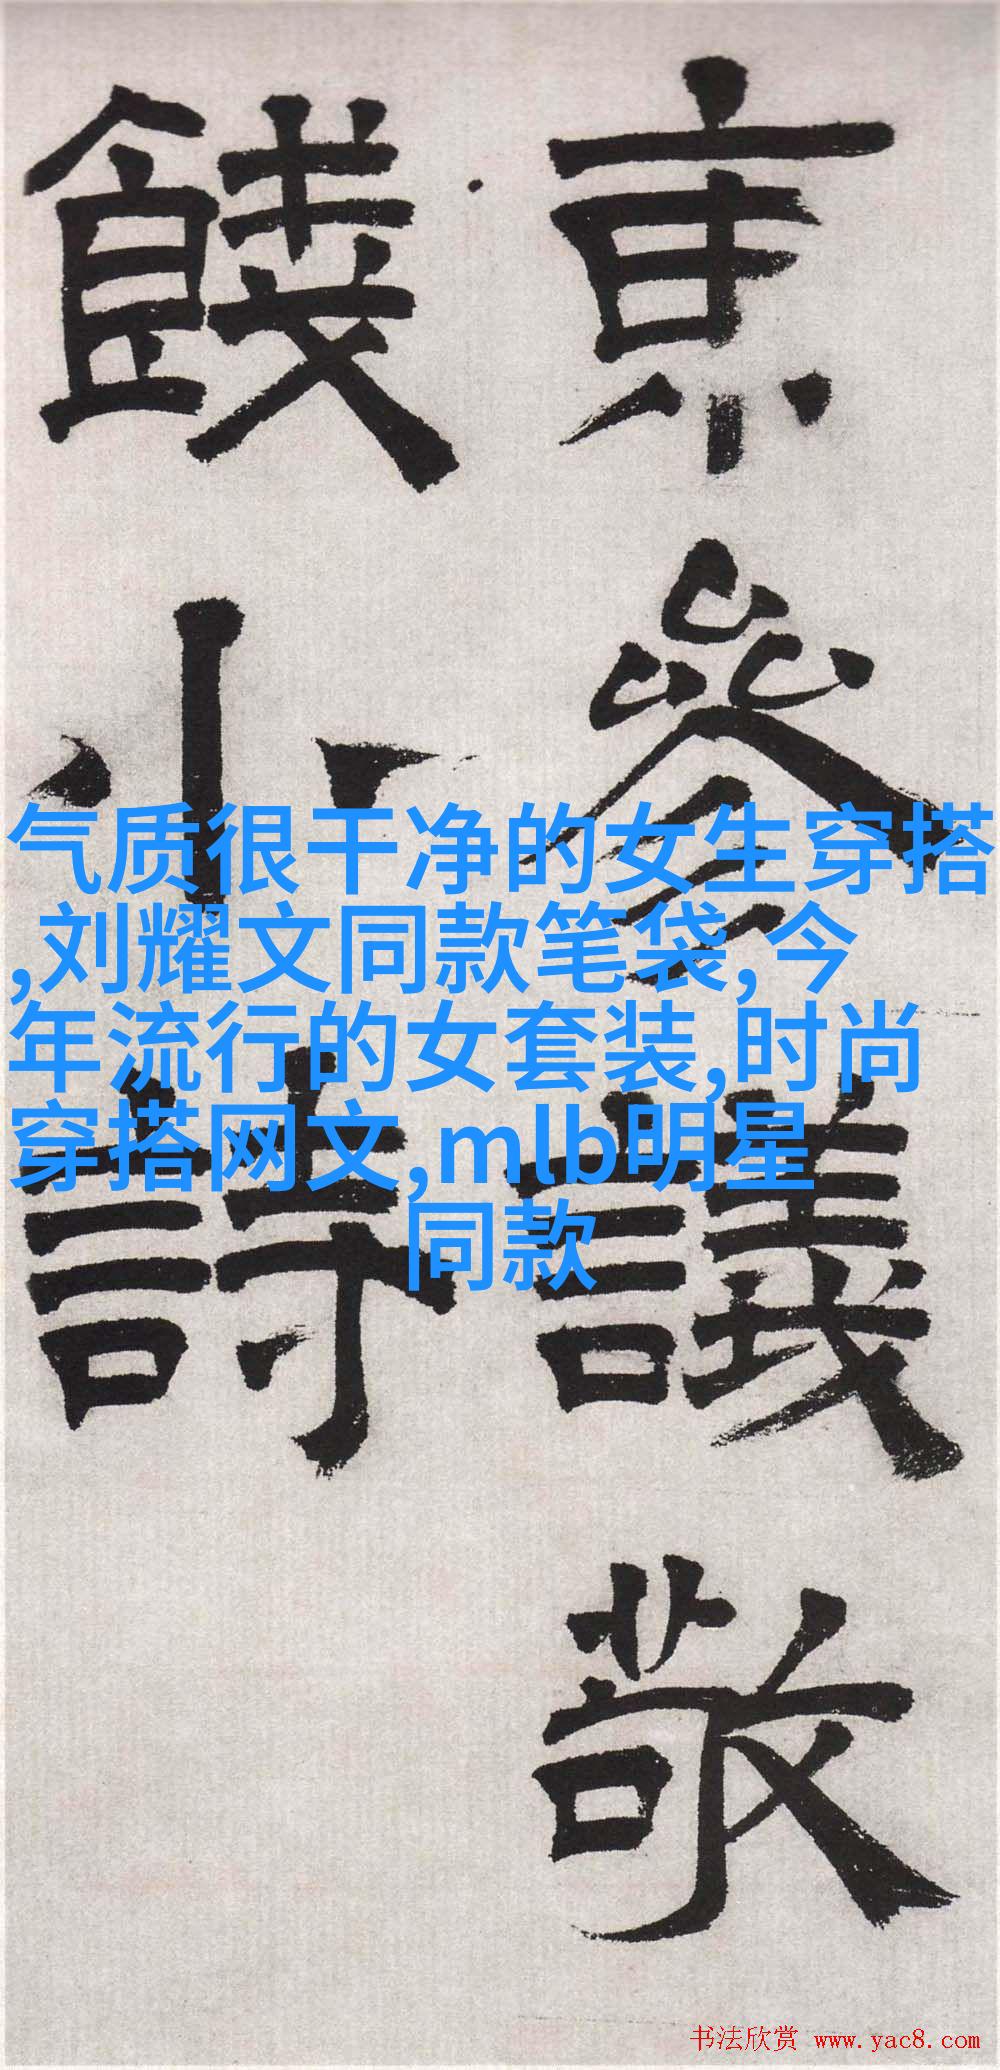 京參議敬
餞小詩
气质很干净的女生穿搭
,刘耀文同款笔袋,今
年流行的女套装,时尚
穿搭网文,mlb明星
同款
书法欣赏 www.yac8.com